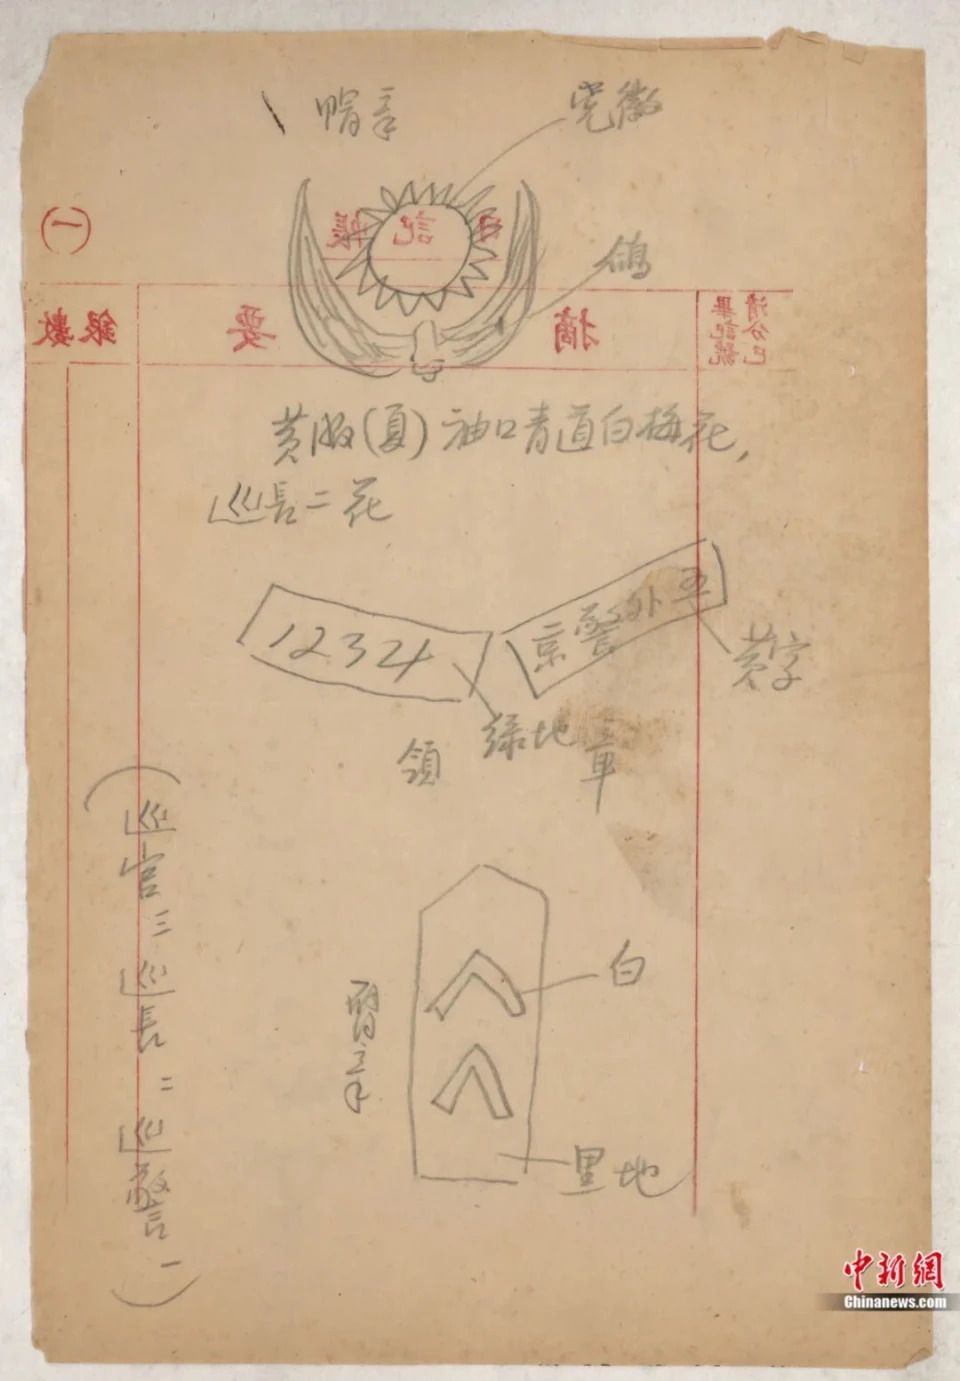 帽章
党徽
鸽
(一)
日記賬
銀數
要
摘
清分已
畢記號
黄服(夏)袖口青道白梅花,
巡長二花
1234
京警外五
黄字
绿地
領章
臂章
白
黑地
(巡官三 巡長二 巡警一)
中新網
Chinanews.com